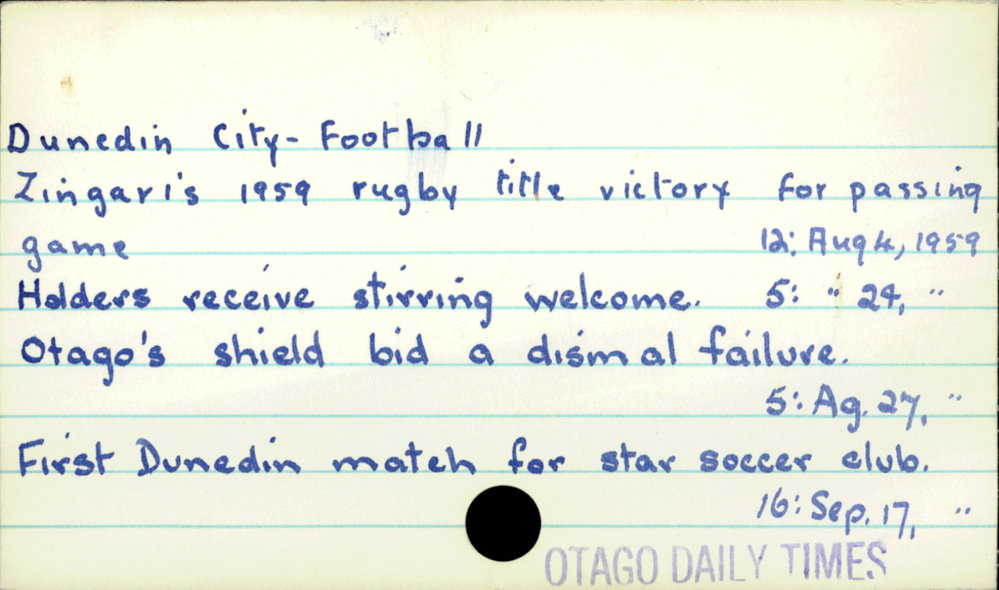 Dunedin City - Football
Zingari's 1959 rugby title victory for passing
game 12: Aug 4, 1959
Holders receive stirring welcome. 5: " 24, "
Otago's shield bid a dismal failure.
5: Ag. 27, "
First Dunedin match for star soccer club.
16: Sep. 17, "
OTAGO DAILY TIMES